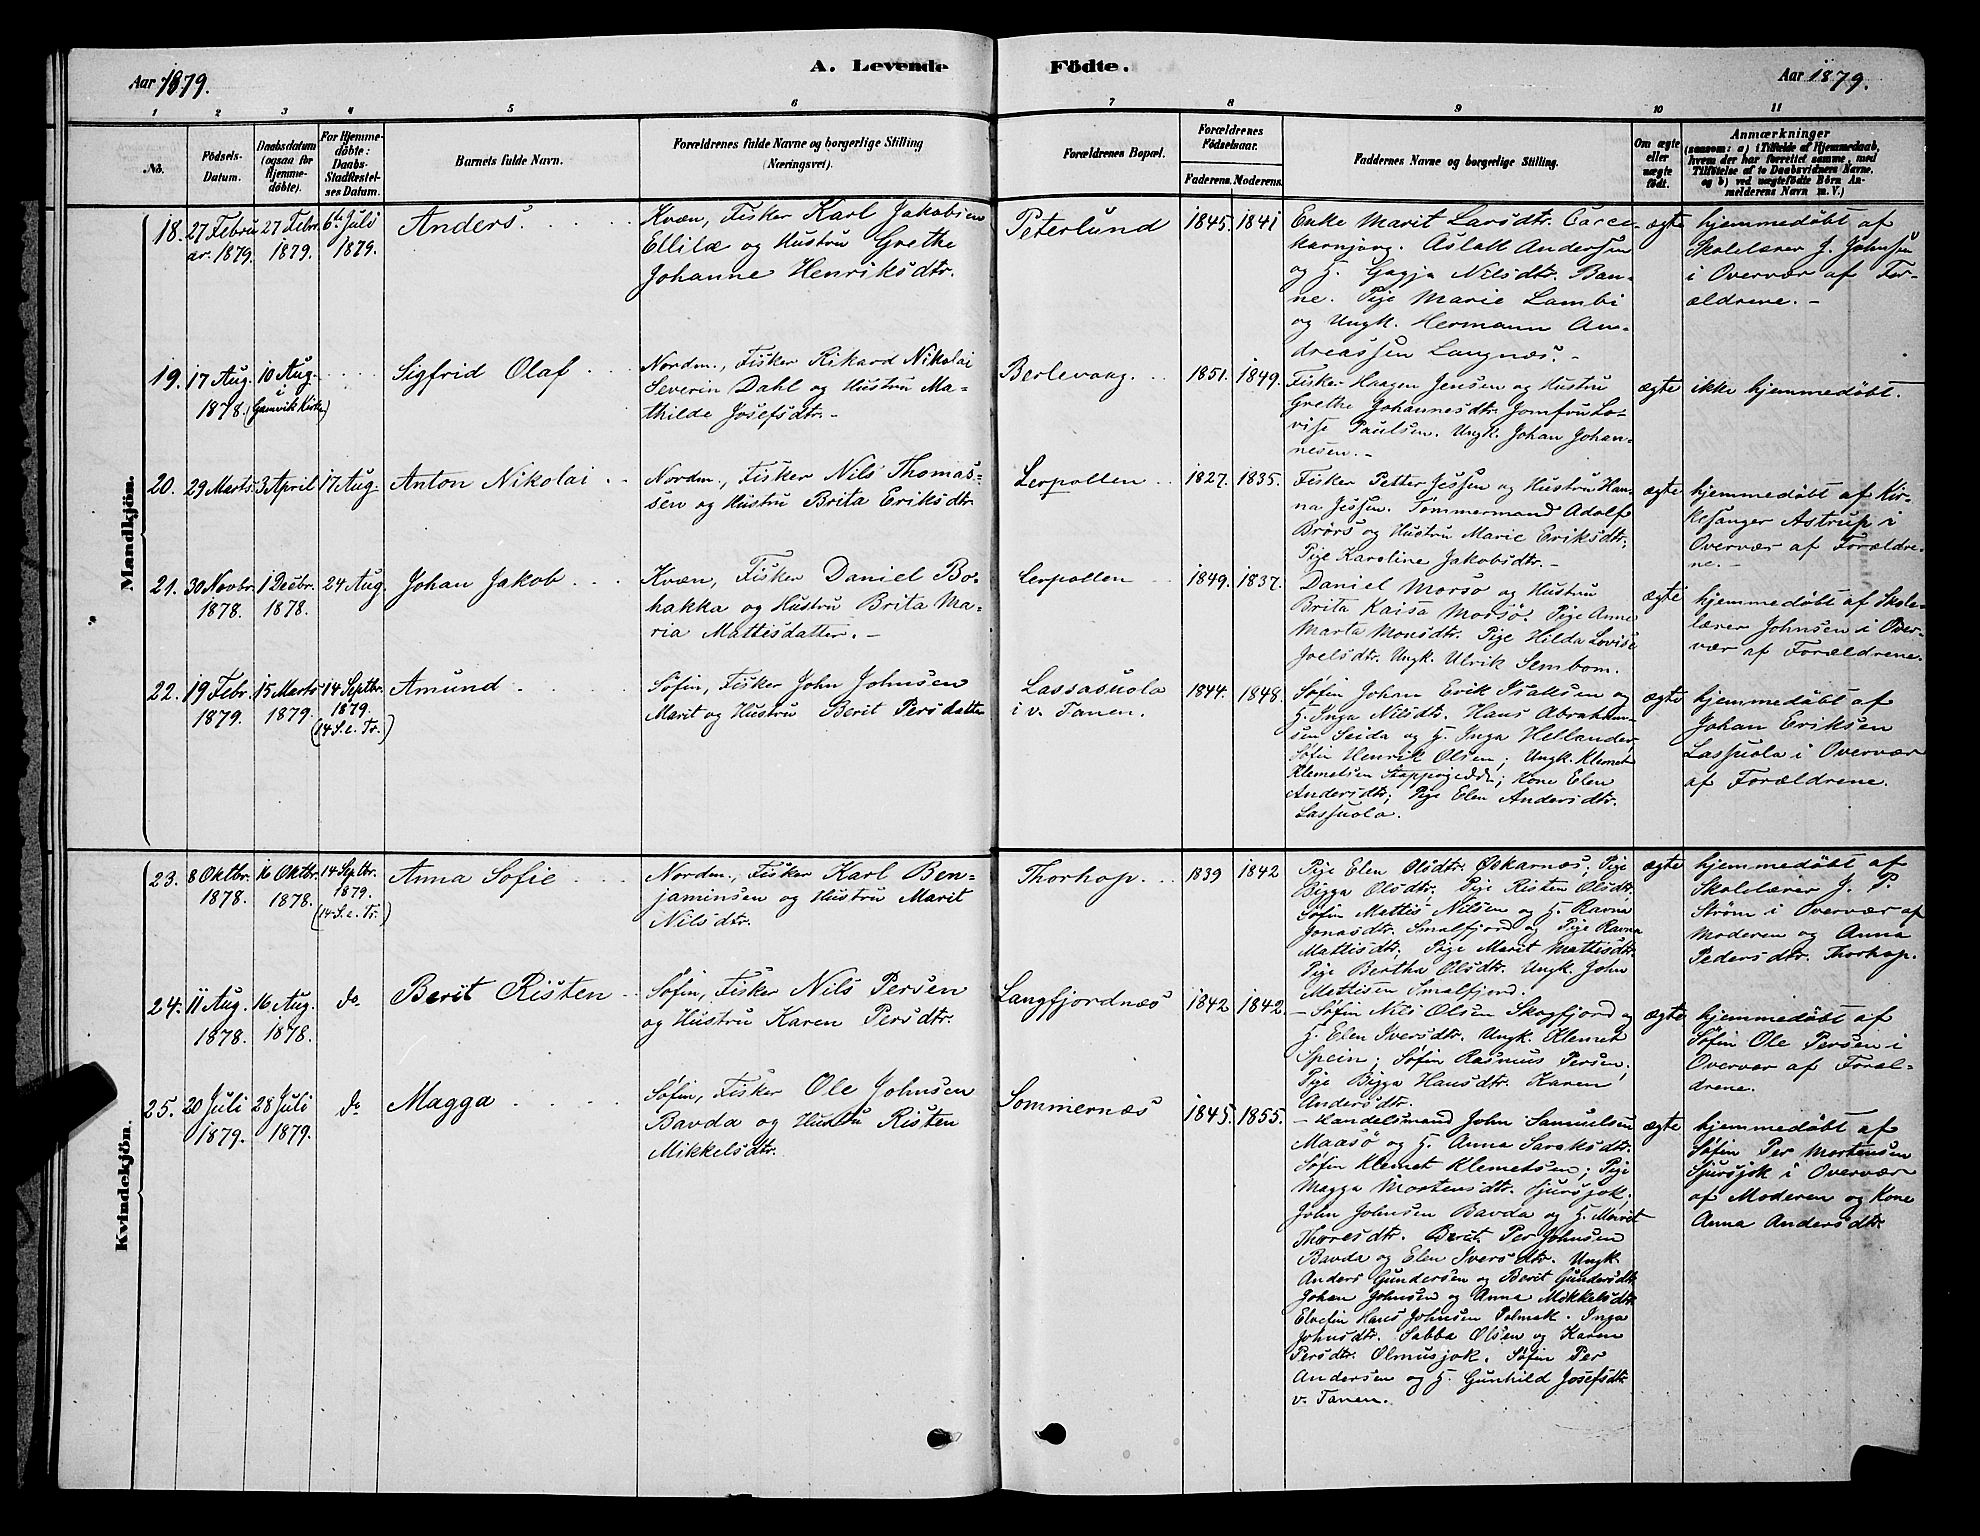 Aar 1879.
A. Levende
Födte.
Aar 1879.
1 2 3 4 5 6
7 8 9 10 11
No.
Födsels-Datum.
Daabsdatum (ogsaa for Hjemmedöbte).
For Hjemmedöbte: Daabs-Stadfæstelses Datum.
Barnets fulde Navn.
Forældrenes fulde Navne og borgerlige Stilling
(Næringsvei).
Forældrenes Bopæl.
Forældrenes Födselsaar.
Faderens. Moderens.
Faddernes Navne og borgerlige Stilling.
Om ægte eller uægte födt.
Anmærkninger
(saasom: a) i Tilfælde af Hjemmedaab,
hvem der har forrettet samme, med
Tilföielse af to Daabsvidners Navne,
og b) ved uægtefödte Börn An-
melderens Navn m. V.)
Mandkjön.
18. 27 Febru
ar. 1879.
27 Febr.
1879.
6te Juli
1879.
Anders.
Kvæn, Fisker Karl Jakobsen
Ellilæ og Hustru Grethe
Johanne Henriksdtr.
Peterlund
1845. 1841
Enke Marit Larsdtr.
Aslak Andersen
og H. Gagja Nilsdtr. Ban-
ne. Pige Marie Lambi
og Ungk. Hermann An-
dreassen Langnæs. -
ægte
hjemmedøbt af
Skolelærer J. Johnsen
i Overvær af For-
ældrene. -
19. 17 Aug.
1878.
10 Aug.
i
(Gamvik Kirke)
Sigfrid Olaf
Nordm., Fisker Rikard Nikolai
Severin Dahl og Hustru Ma-
thilde Josefsdtr. -
Berlevaag.
1851. 1849.
Fisker Haagen Jensen og Hustru
Grethe Johannesdtr. Jomfru Lo-
vise Paulsen. Ungk. Johan Johan-
nesen. -
ægte
ikke hjemmedøbt.
20. 29 Marts
3 April
17 Aug.
Anton Nikolai
Nordm., Fisker Nils Thomas-
sen og Hustru Brita Eriksdtr.
Lerpollen
1827. 1835.
Fisker Petter Jessen og Hustru Han-
na Jessen. Tømmermand Adolf
Brörs og Hustru Marie Eriksdtr;
Pige Karoline Jakobsdtr. -
ægte
hjemmedøbt af Kir-
kesanger Astrup i
Overvær af Forældre-
ne. -
21. 30 Novbr.
1878.
1 Decbr.
1878.
24 Aug.
Johan Jakob
Kvæn, Fisker Daniel Bo-
hakka og Hustru Brita Ma-
ria Mattisdatter. -
Lerpollen
1849. 1837.
Daniel Morsø og Hustru
Brita Kaisa Morsö. Pige Anne
Marta Monsdtr. Pige Hilda Lovise
Joelsdtr. Ungk. Ulrik Sembom.
ægte
hjemmedøbt af Skole-
lærer Johnsen i Over-
vær af Forældrene.
22. 19 Febr.
1879.
15 Marts
1879.
14 Septbr.
1879.
(14 S. e. Tr.)
Amund
Søfin, Fisker John Johnsen
Marit og Hustru Berit Persdatter
Lassasuola
i v. Tanen.
1844. 1848.
Søfin Johan Erik Isaksen og
H. Inga Nilsdtr. Hans Abraham-
sen Seida og H. Inga Hellander;
Søfin Henrik Olsen; Ungk. Klemet
Klemetsen; Kone Elen
Andersdtr; Pige Elen Andersdtr.
Lassuola.
ægte
hjemmedøbt af
Johan Eriksen
Lassuola i Overvær
af Forældrene.
Kvindekjön.
23. 8 Oktbr.
1878.
16 Oktbr.
1878.
14 Septbr.
1879.
(14 S. e. Tr.)
Anna Sofie
Nordm., Fisker Karl Ben-
jaminsen og Hustru Marit
Nilsdtr.
Thorhop.
1839 1842
Pige Elen Olsdtr. Oskarnæs; Pige
Bigga Olsdtr; Pige Risten Olsdtr.
Søfin Mattis Nilsen og H. Ravna
Jonasdtr. Smalfjord og Pige Ravna
Mattisdtr; Pige Marit Mattisdtr.
Pige Bertha Olsdtr. Ungk. John
Mattisen Smalfjord.
ægte
hjemmedøbt af
Skolelærer J. P.
Strøm i Overvær af
Moderen og Anna
Pedersdtr. Thorhop.
24. 11 Aug.
1878.
16 Aug.
1878.
do
Berit Risten
Søfin, Fisker Nils Persen
og Hustru Karen Persdtr.
Langfjordnæs
1842 1842.
- Søfin Nils Olsen Skogfjord og
H. Elen Iversdtr. Ungk. Klemet
Spein; Søfin Rasmus Persen;
Pige Bigga Hansdtr. Karen
Andersdtr.
ægte
hjemmedøbt af
Søfin Ole Persen i
Overvær af Foræl-
drene.
25. 20 Juli
1879.
28 Juli
1879.
do
Magga
Søfin, Fisker Ole Johnsen
Bavda og Hustru Risten
Mikkelsdtr.
Sommernæs
1845. 1855.
- Handelsmand John Samuelsen
Maasø og H. Anna Saraksdtr.
Søfin Klemet Klemetsen; Pige
Magga Mortensdtr. Sjursjok.
John Johnsen Bavda og H. Marit
Thoresdtr. Berit. Per Johnsen
Bavda og Elen Iversdtr. Ungk.
Anders Gundersen og Berit Gundersdtr.
Johan Johnsen og Anna Mikkelsdtr.
Elvefin Hans Johnsen Polmak. Inga
Johnsdtr. Sabba Olsen og Karen
Persdtr. Olmusjok. Søfin Per
Andersen og H. Gunhild Josefsdtr.
v. Tanen.
ægte
hjemmedøbt af
Søfin Per Mortensen
Sjursjok i Overvær
af Moderen og Kone
Anna Andersdtr.